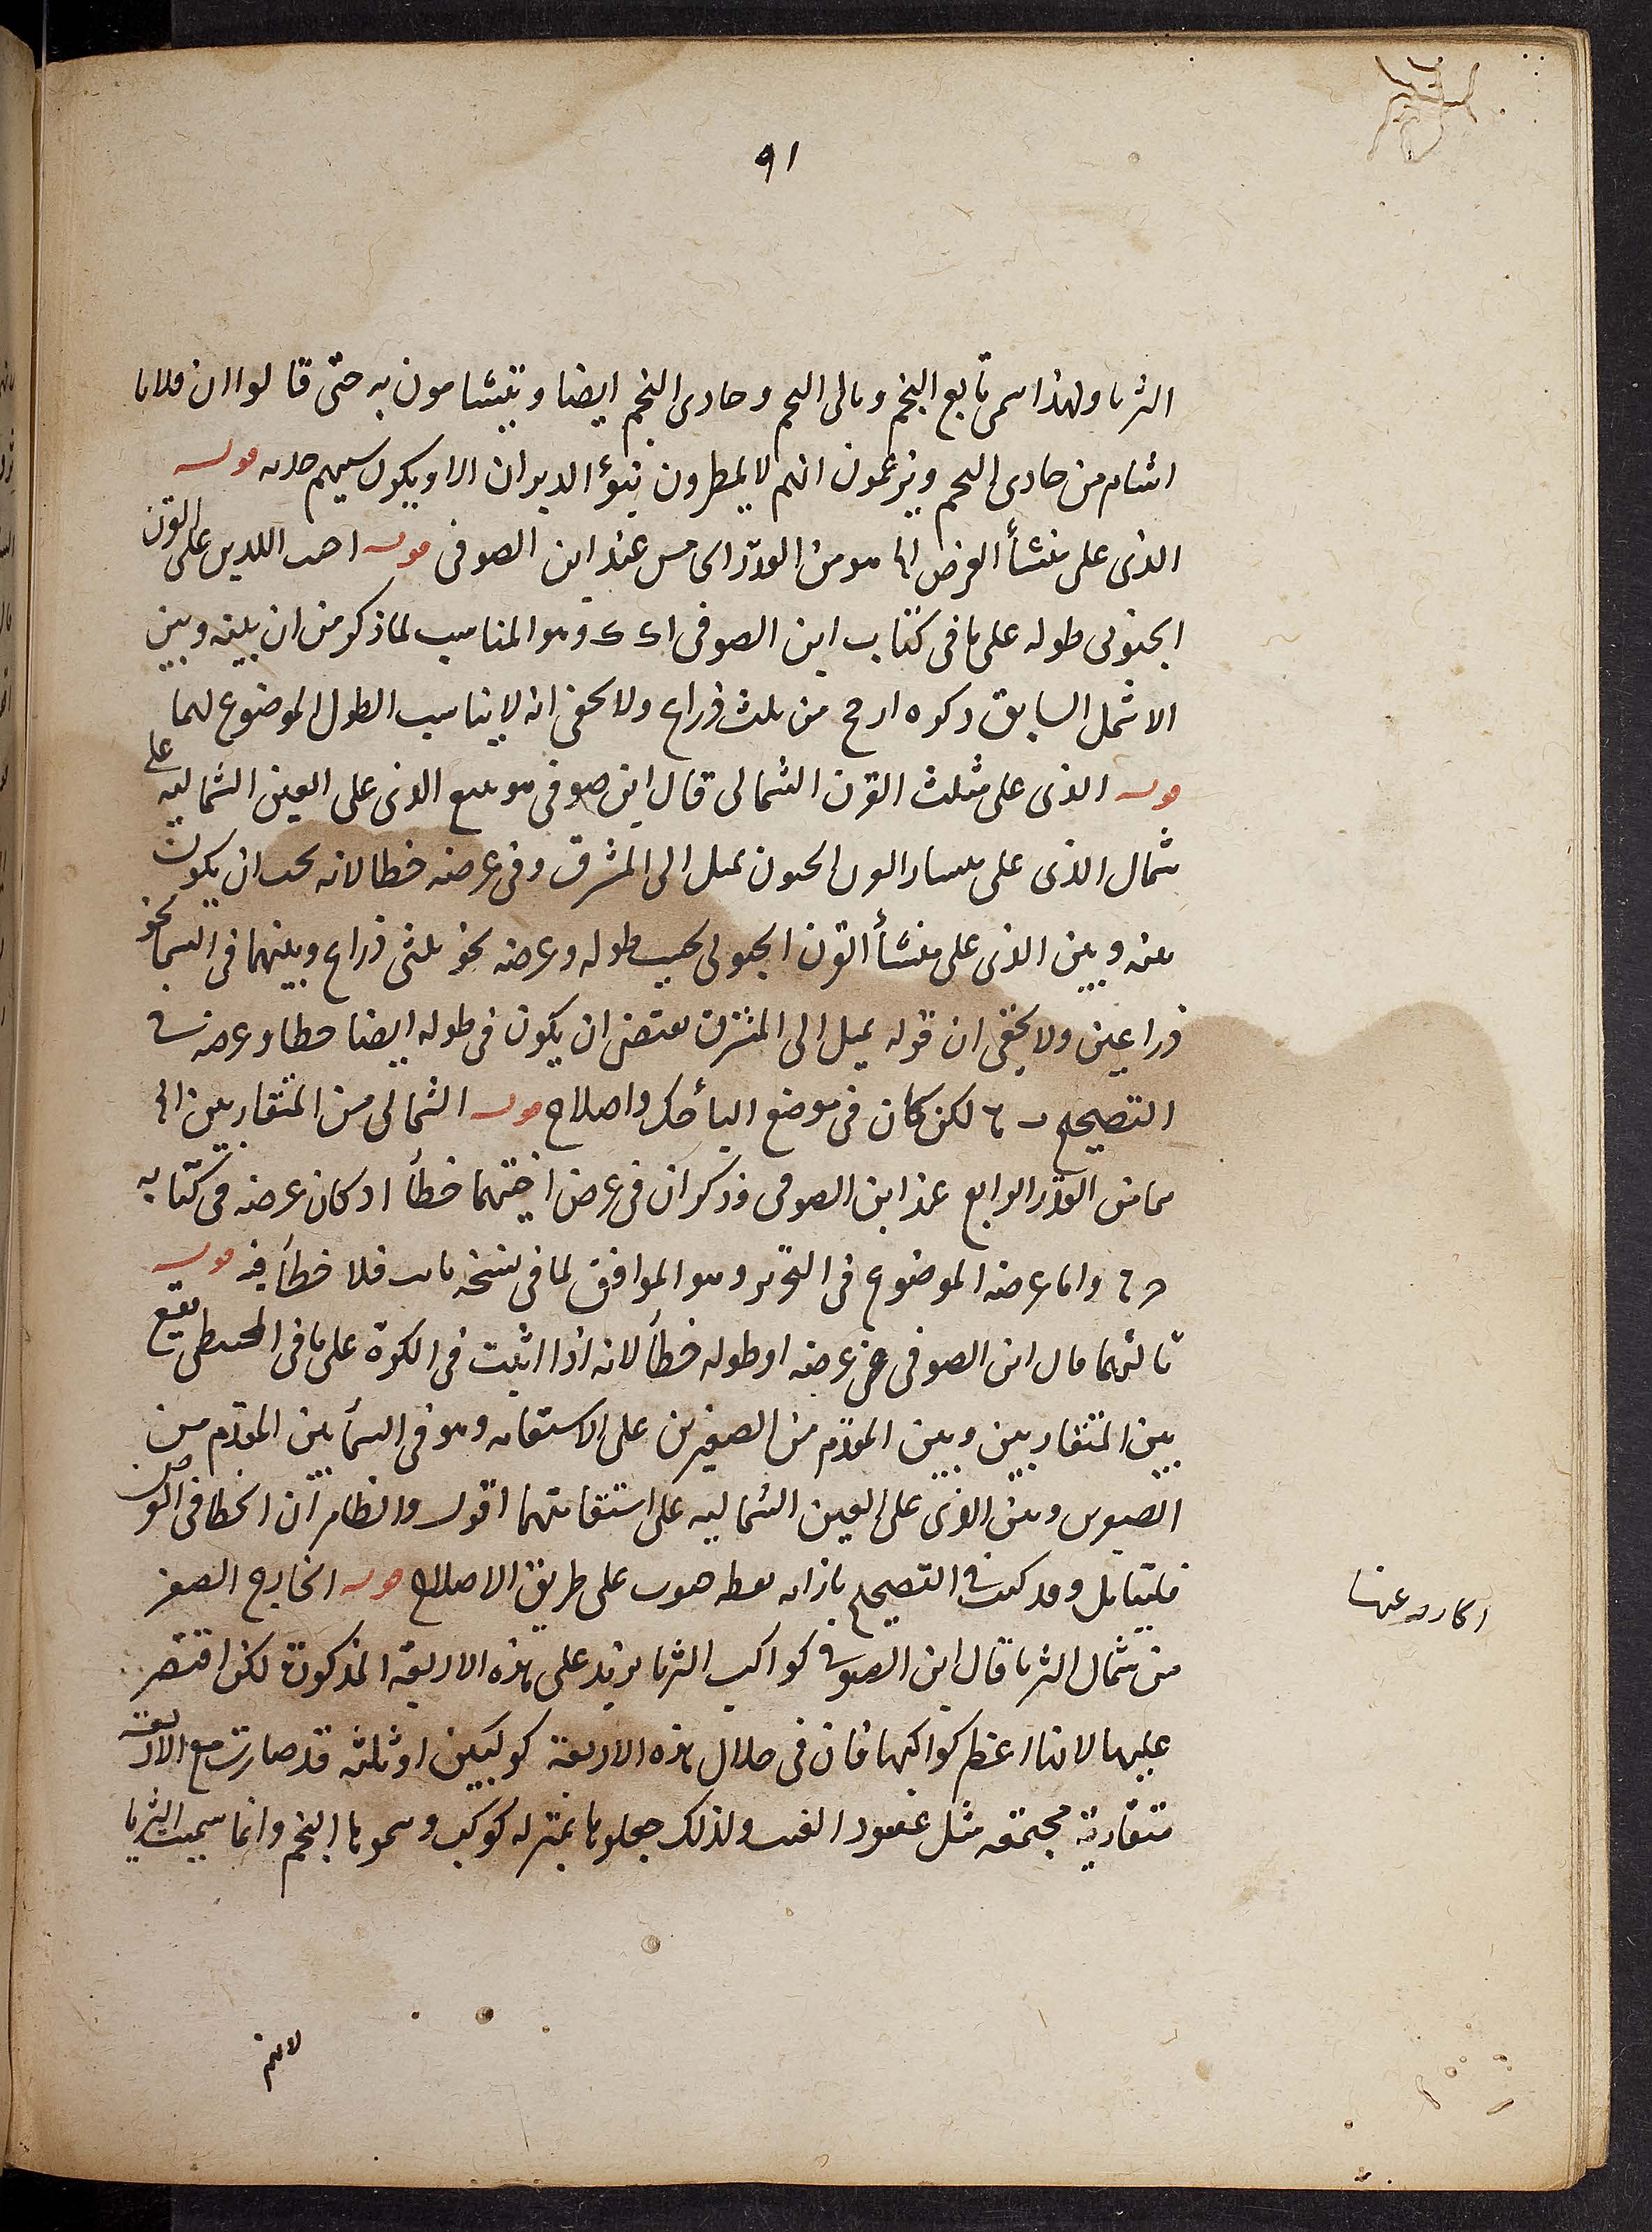 ٩١
الثريا ولهذا سمى تابع النجم وتالى النجم وحادى النجم ايضا ويتشامون به حتى قالوا ان فلانا
اشام من حادى النجم ويزعمون انهم لا يمطرون بنوء الدبران الا ويكون سنتهم جدبه قوله
الذى على منشأ القرن الخ هو من القدر الخامس عند ابن الصوفى قوله احد اللذين على القرن
الجنوبى طوله على ما فى كتاب ابن الصوفى وهو المناسب لما ذكر من ان بينه وبين
الاشمل السابق ذكره ارجح من ثلث ذراع ولا يخفى انه لا يناسب الطول الموضوع لهما
قوله الذى على مثلث القرن الشمالى قال ابن صوفى هو مع الذى على العين الشماليه على
شمال الذى على منشأ القرن الجنوبى يميل الى المشرق وفى عرضه خطا لانه يجب ان يكون
بينه وبين الذى على منشأ القرن الجنوبى بحسب طوله وعرضه نحو ثلثى ذراع وبينهما فى السما نحو
ذراعين ولا يخفى ان قوله يميل الى المشرق يقتضى ان يكون فى طوله ايضا خطا وعرضه فى
التصحيح لكن كان فى موضع اليأ حك واصلاح قوله الشمالى من المتقاربين الخ
هما من القدر الرابع عند ابن الصوفى وذكر ان فى عرض اختهما خطأ اذ كان عرضه فى كتابه
واما عرضه الموضوع فى التحرير وهو الموافق لما فى نسخة ثابت فلا خطأ فيه قوله
تاليهما قال ابن الصوفى فى عرضه او طوله خطأ لانه اذا اثبت فى الكرة على ما فى المجسطى يقع
بين المتقاربين وبين المقدم من الصغيرين على الاستقامه وهو فى السمأ بين المقدم من
الصغيرين وبين الذى على العين الشماليه على استقامتهما اقول والظاهر ان الخطا فى العرض
فليتأمل وقد كتب فى التصحيح بازائه على طريق الاصلاح قوله الخارج الصغير
من شمال الثريا قال ابن الصوفى كواكب الثريا يزيد على هذه الاربعة المذكورة لكن اقتصر
عليها لانها اعظم كواكبها فان فى خلال هذه الاربعة كوكبين او ثلثه قد صارت مع الاربعة
متقاربة مجتمعه مثل عنقود العنب ولذلك جعلوها بمنزله كوكب وسموها النجم وانما سميت الثريا
الخارجه عنها
لانهم